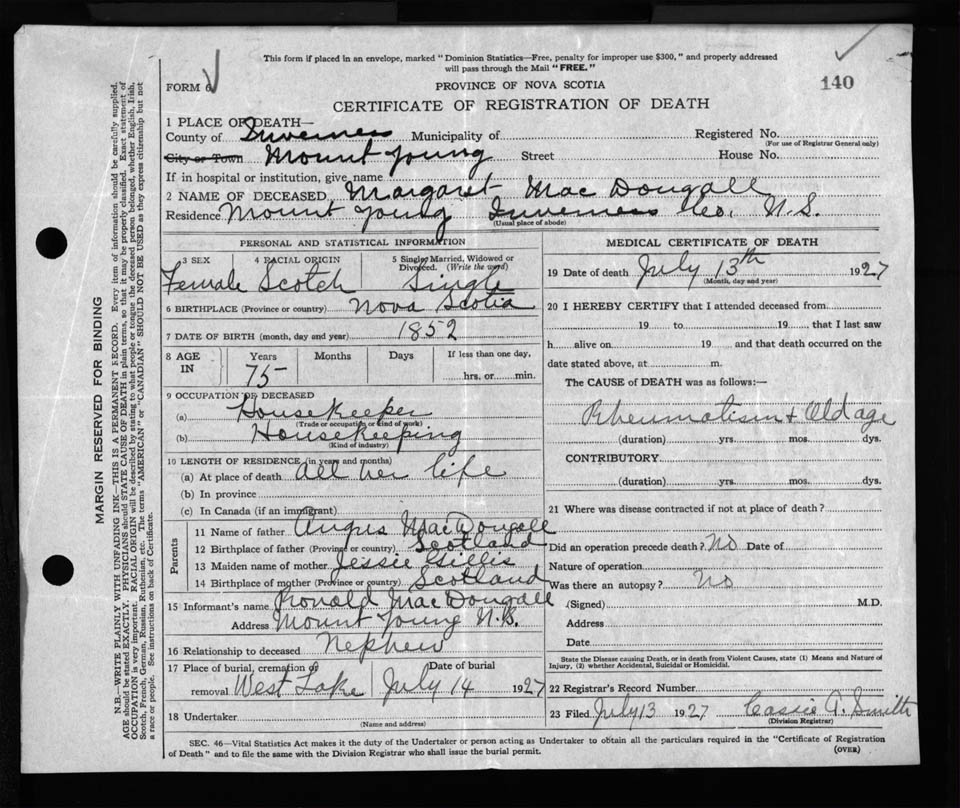 This form if placed in an envelope, marked "Dominion Statistics—Free, penalty for improper use $300," and properly addressed
will pass through the Mail "FREE."
FORM 6
PROVINCE OF NOVA SCOTIA
140
CERTIFICATE OF REGISTRATION OF DEATH
1 PLACE OF DEATH—
County of Inverness Municipality of Registered No.
(For use of Registrar General only)
City or Town Mount Young Street House No.
If in hospital or institution, give name
2 NAME OF DECEASED Margaret Mac Dougall
Residence Mount Young Inverness Co. N.S.
(Usual place of abode)
PERSONAL AND STATISTICAL INFORMATION
3 SEX 4 RACIAL ORIGIN 5 Single, Married, Widowed or
Divorced. (Write the word)
Female Scotch Single
6 BIRTHPLACE (Province or country) Nova Scotia
7 DATE OF BIRTH (month, day and year) 1852
8 AGE IN Years Months Days If less than one day,
75 hrs. or min.
9 OCCUPATION OF DECEASED
(a) Housekeeper
(Trade or occupation or kind of work)
(b) Housekeeping
(Kind of industry)
10 LENGTH OF RESIDENCE (in years and months)
(a) At place of death all her life
(b) In province
(c) In Canada (if an immigrant)
Parents
11 Name of father Angus MacDougall
12 Birthplace of father (Province or country) Scotland
13 Maiden name of mother Jessie Gillis
14 Birthplace of mother (Province or country) Scotland
15 Informant's name Ronald MacDougall
Address Mount Young N.S.
16 Relationship to deceased Nephew
17 Place of burial, cremation or Date of burial
removal West Lake July 14 1927
18 Undertaker
(Name and address)
MEDICAL CERTIFICATE OF DEATH
19 Date of death July 13th 1927
(Month, day and year)
20 I HEREBY CERTIFY that I attended deceased from
19 to 19 that I last saw
h alive on 19 and that death occurred on the
date stated above, at m.
The CAUSE of DEATH was as follows:—
Rheumatism + Old age
(duration) yrs. mos. dys.
CONTRIBUTORY
(duration) yrs. mos. dys.
21 Where was disease contracted if not at place of death?
Did an operation precede death? No Date of
Nature of operation
Was there an autopsy? No
(Signed) M.D.
Address
Date
State the Disease causing Death, or in death from Violent Causes, state (1) Means and Nature of
Injury, (2) whether Accidental, Suicidal or Homicidal.
22 Registrar's Record Number
23 Filed July 13 1927 Cassie A. Smith
(Division Registrar)
SEC. 46—Vital Statistics Act makes it the duty of the Undertaker or person acting as Undertaker to obtain all the particulars required in the "Certificate of Registration
of Death" and to file the same with the Division Registrar who shall issue the burial permit.
(OVER)
MARGIN RESERVED FOR BINDING
N.B.—WRITE PLAINLY WITH UNFADING INK—THIS IS A PERMANENT RECORD. Every item of information should be carefully supplied.
AGE should be stated EXACTLY. PHYSICIANS should STATE CAUSE OF DEATH in plain terms, so that it may be properly classified. Exact statement of
OCCUPATION is very important. RACIAL ORIGIN will be described by stating to what people or tongue the deceased person belonged, whether English, Irish,
Scotch, French, German, Russian, Ruthenian, etc. The terms "AMERICAN" or "CANADIAN" SHOULD NOT BE USED as they express citizenship but not
a race or people. See instructions on back of Certificate.